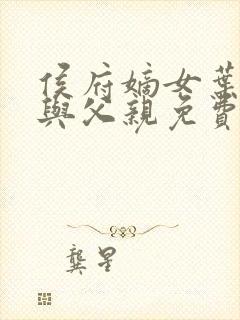 侯府嫡女葉
與父親免費
龔星